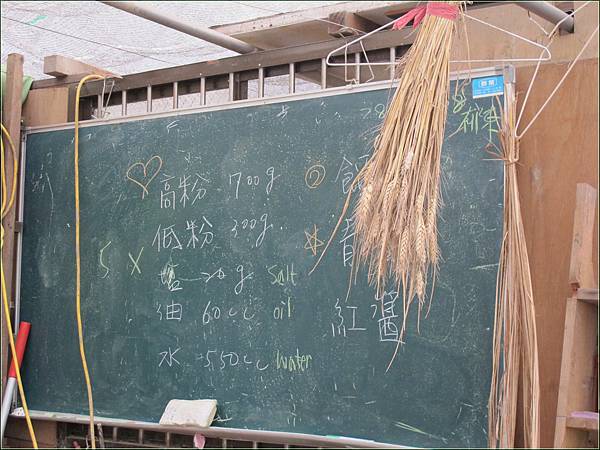 高粉 700g
低粉 300g
5 X
塩 20g salt
油 60cc oil
水 550cc water
②
紅醬